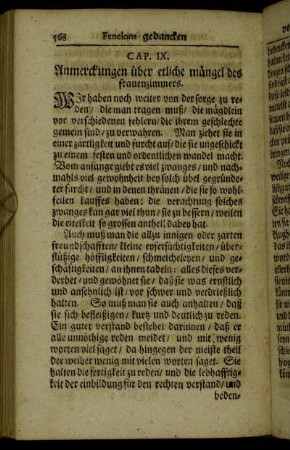 568 Fenelons gedancken
CAP. IX.
Anmerckungen über etliche mängel des
frauenzimmers.
WIr haben noch weiter von der sorge zu re-
den/ die man tragen muß/ die mägdlein
vor verschiedenen fehlern/ die ihrem geschlechte
gemein sind/ zu verwahren. Man ziehet sie in
einer zärtligkeit und furcht auf/ die sie ungeschickt
zu einem festen und ordentlichen wandel macht.
Vom anfange giebt es viel zwanges/ und nach-
mahls viel gewohnheit bey solch übel gegründe-
ter furcht/ und in denen thränen/ die sie so wohl-
feilen kauffes haben: die verachtung solches
zwanges kan gar viel thun/ sie zu bessern/ weilen
die eitelkeit so grossen antheil dabey hat.
Auch muß man die allzu innigen oder zarten
freundschafften/ kleine eyfersüchtigkeiten/ über-
flüßige höffligkeiten/ schmeicheleyen/ und ge-
schäfftigkeiten/ an ihnen tadeln: alles dieses ver-
derbet/ und gewöhnet sie/ daß sie was ernstlich
und ansehnlich ist/ vor schwer und verdrießlich
halten. So muß man sie auch anhalten/ daß
sie sich befleißigen/ kurtz und deutlich zu reden.
Ein guter verstand bestehet darinnen/ daß er
alle unnöthige reden meidet/ und mit wenig
worten viel saget/ da hingegen der meiste theil
der weiber wenig mit vielen worten saget. Sie
halten die fertigkeit zu reden/ und die lebhafftig-
keit der einbildung für den rechten verstand/ und
beden-